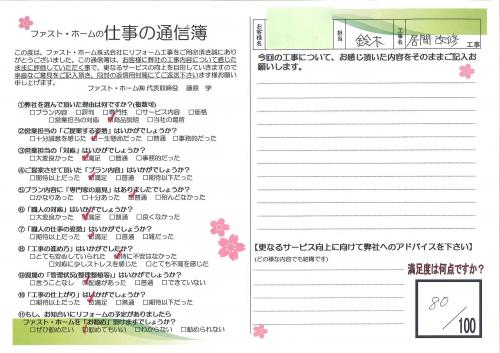 ファスト・ホームの仕事の通信簿
この度は、ファスト・ホーム株式会社にリフォーム工事をご用命頂き誠にあり
がとうございました。この通信簿は、お客様に弊社の工事内容について感じた
ままに評価していただく事で、更なるサービスの向上を目指していきますので
率直なご意見をご記入頂き、同封の返信用封筒にてご返送下さいます様お願い
申し上げます。
ファスト・ホーム㈱ 代表取締役 藤原 学
①弊社を選んで頂いた理由は何ですか?(複数可)
□プラン内容 □評判 □専門性 □サービス内容 □価格
□営業担当の対応 □商品説明 □当社の場所
②営業担当の「ご提案する姿勢」はいかがでしょうか?
□十分誠意を感じた □一生懸命だった □普通 □事務的だった
③営業担当の「対応」はいかがでしょうか?
□大変良かった □満足 □普通 □事務的だった
④ご提案させて頂いた「プラン内容」はいかがでしたか?
□期待以上だった □満足 □普通 □期待以下だった
⑤プラン内容に「専門家の意見」はありましたでしょうか?
□かなりあった □十分あった □普通 □殆んどなかった
⑥「職人の対応」はいかがでしょうか?
□大変良かった □満足 □普通 □良くなかった
⑦「職人の仕事の姿勢」はいかがでしょうか?
□期待以上だった □満足 □普通 □雑だった
⑧「工事の進め方」はいかがでしたか?
□とても安心していられた □特に不安はなかった
□対応に少しストレスを感じた □とても不満を感じた
⑨現場の「管理状況(整理整頓等)」はいかがでしょうか?
□言うことなし □配慮があった □普通 □できていない
⑩「工事の仕上がり」はいかがでしょうか?
□期待以上だった □満足 □普通 □期待以下だった
⑪もし、お知合いにリフォームの予定がありましたら
ファスト・ホームを「お勧め」頂けますでしょうか?
□ぜひ勧めたい □勧めてもいい □わからない □勧められない
お客様名 鈴木 工事名 居間改修 工事
今回の工事について、お感じ頂いた内容をそのままご記入お
願いします。
【更なるサービス向上に向けて弊社へのアドバイスを下さい】
(どの様な内容でも結構です)
満足度は何点ですか?
80/100